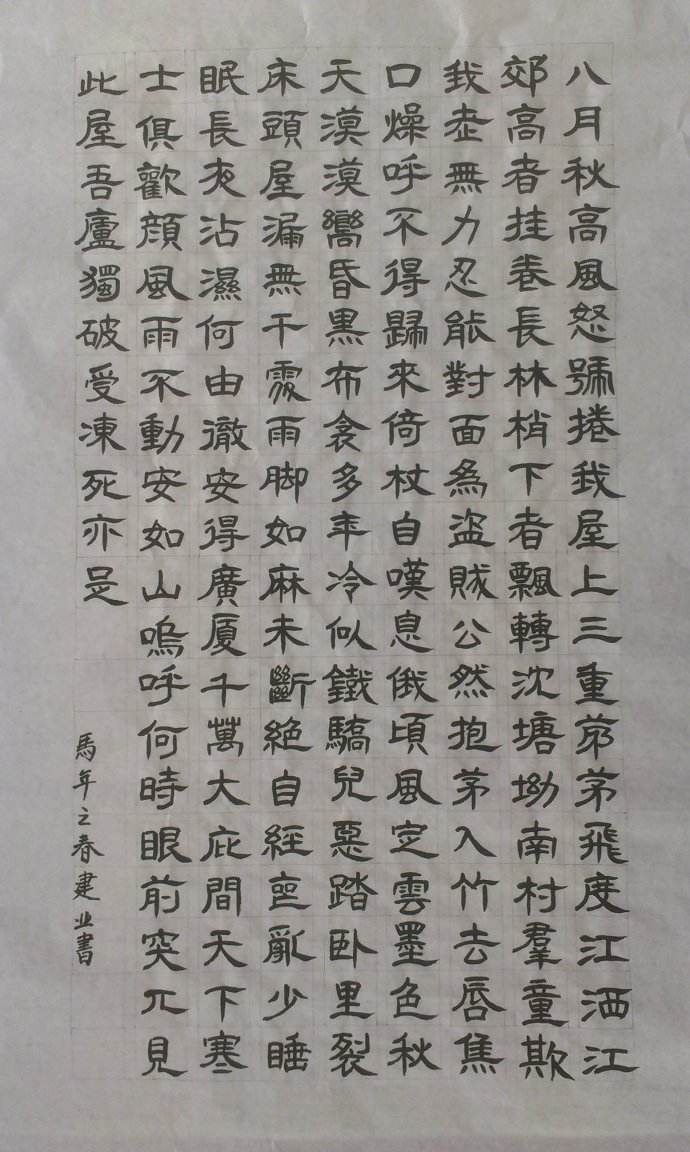 八月秋高風怒號捲我屋上三重茅茅飛度江洒江
郊高者挂卷長林梢下者飄轉沈塘坳南村羣童欺
我老無力忍能對面為盜賊公然抱茅入竹去唇焦
口燥呼不得歸來倚杖自嘆息俄頃風定雲墨色秋
天漠漠嚮昏黑布衾多年冷似鐵驕兒惡踏卧里裂
床頭屋漏無干處雨脚如麻未斷絕自經喪亂少睡
眠長夜沾濕何由徹安得廣厦千萬大庇間天下寒
士俱歡顏風雨不動安如山嗚呼何時眼前突兀見
此屋吾廬獨破受凍死亦足
馬年之春建业書